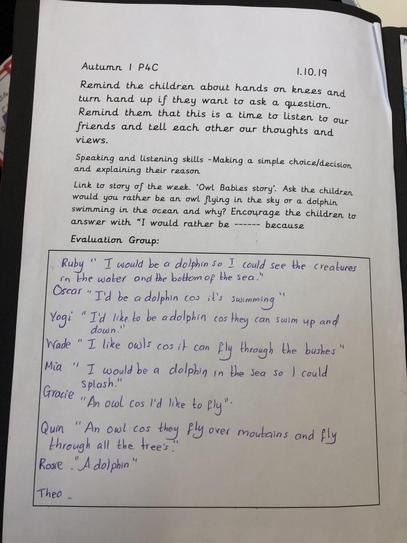 Autumn 1 P4C 1.10.19
Remind the children about hands on knees and
turn hand up if they want to ask a question.
Remind them that this is a time to listen to our
friends and tell each other our thoughts and
views.
Speaking and listening skills -Making a simple choice/decision
and explaining their reason
Link to story of the week. 'Owl Babies story'. Ask the children
would you rather be an owl flying in the sky or a dolphin
swimming in the ocean and why? Encourage the children to
answer with "I would rather be ------ because
Evaluation Group:
Ruby " I would be a dolphin so I could see the creatures
in the water and the bottom of the sea."
Oscar "I'd be a dolphin cos it's swimming"
Yogi "I'd like to be a dolphin cos they can swim up and
down."
Wade "I like owls cos it can fly through the bushes"
Mia "I would be a dolphin in the sea so I could
splash."
Gracie
"An owl cos I'd like to fly".
Quin "An owl cos they fly over moutains and fly
through all the tree's."
Rosie - "A dolphin"
Theo -